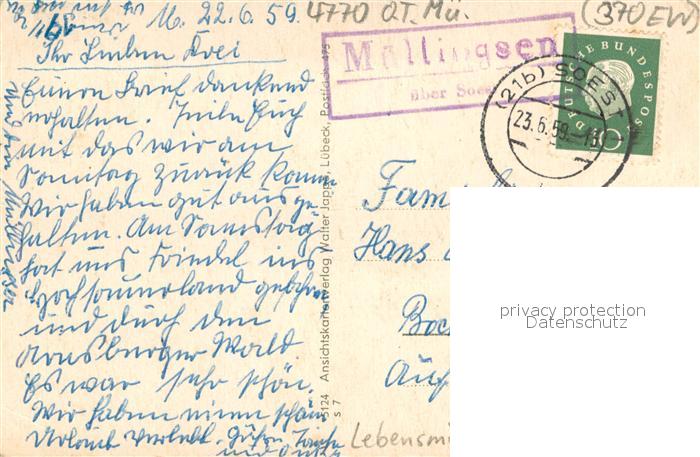 M. 22.6.59.
4770 OT. Mü.
(370 EW)
Ihr Lieben Drei
Euren Brief dankend
erhalten. Teile Euch
mit das wir am
Sonntag zurück kommen
Wir haben gut aus ge-
halten. Am Samstag
hat uns Friedel ins
Hochsauerland gefahren
und durch den
Arnsberger Wald
Es war sehr schön.
Wir haben einen schönen
Urlaub verlebt. Grüße Tante
und Onkel
Müllingsen
über Soest
(21b) SOEST
23.6.59
DEUTSCHE BUNDESPOST
10
5124 Ansichtskartenverlag Walter Jappe, Lübeck, Postfach 475
s 7
Fam
Hans
Boc
Auf
Lebensmi
privacy protection
Datenschutz